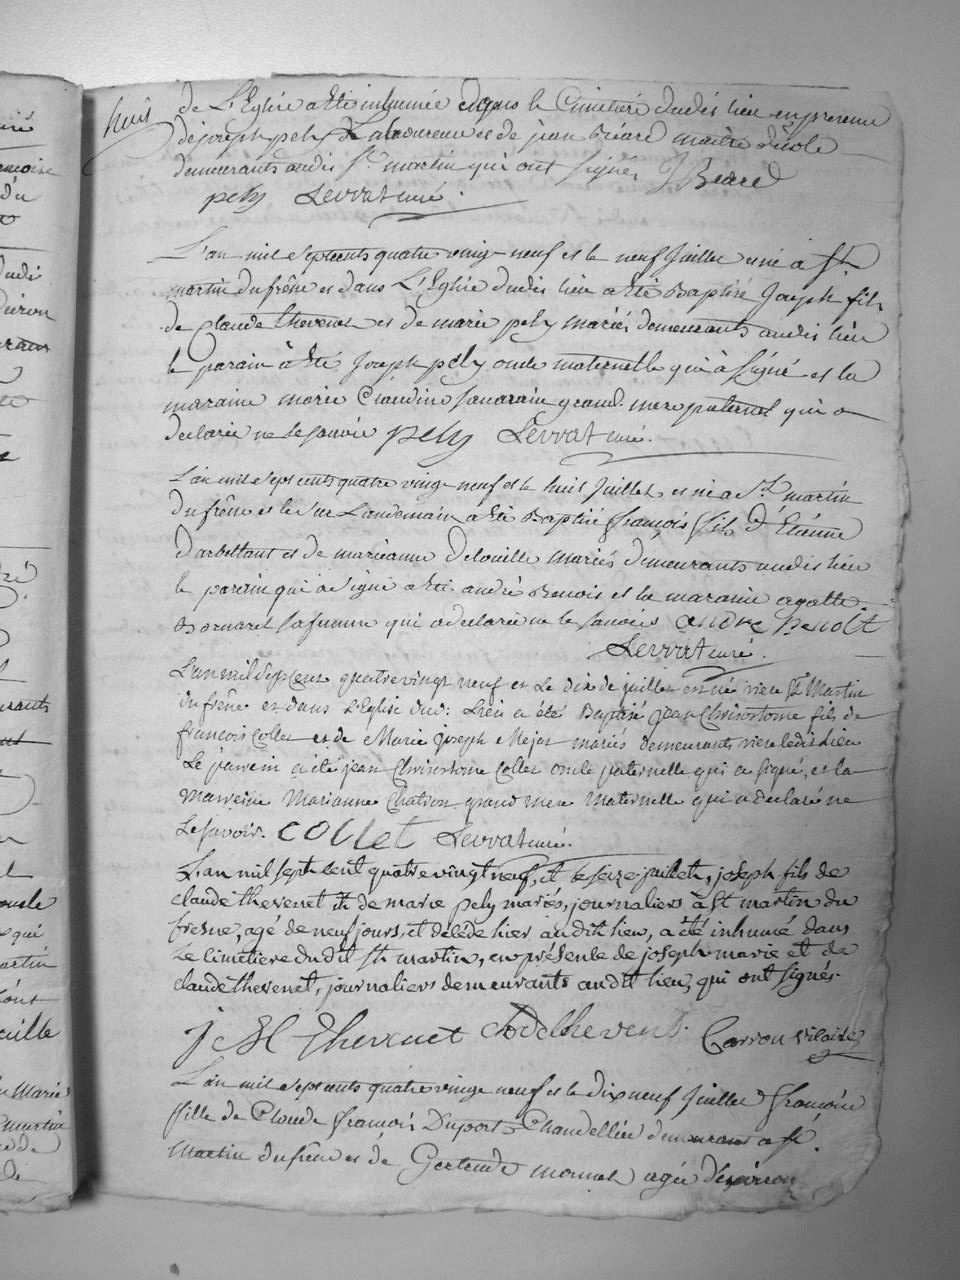 huit
de L'Eglise a Eté inhumée dans le Cimetiere dudit lieu en presence
de joseph pely Laboureur et de jean Béard maitre d'école
demeurants audit St martin qui ont signés JBéard
pely Levrat curé
L'an mil septcents quatre vingt neuf et le neuf juillet est né à St
martin du frêne et dans L'Eglise dudit lieu a Eté Baptisé joseph fils
de Claude thevenet et de marie pely mariés demeurants audit lieu
le parain à Eté joseph pely oncle maternelle qui à signé et la
maraine marie Claudine grand mere paternel qui a
declarée ne le savoir pely Levrat curé.
L'an mil septcents quatre vingt neuf et le huit juillet est né a St martin
du frêne et le sur Landemain a Eté Baptisé françois fils d'Etienne
Darbettant et de marieanne Delouille mariés demeurants audit lieu
le parain qui à signé a Eté andré Benoit et la maraine agatte
Bornarel sa femme qui a declarée ne le savoir andre benoit
Levrat curé.
L'an mil septcent quatrevingt neuf et le dix de juillet est né riere St Martin
du frêne et dans L'Eglise dud: Lieu a été Baptisé jean Chrisostome fils de
françois Collet et de Marie joseph Mejat mariés demeurants riere ledit Lieu
Le parrein a été jean Chrisostome Collet oncle paternelle qui a signé, et la
Marreine Marianne Chatron grand mere maternelle qui a declaré ne
Le savoir. COLLET Levrat curé.
L'an mil sept cent quatrevingt neuf, et le seize juillet, joseph fils de
claude thevenet et de marie pely mariés, journaliers à St martin du
fresne, agé de neuf jours, et décédé hier audit lieu, a été inhumé dans
Le cimetiere dudit St martin, en présence de joseph marie et de
claude thevenet, journaliers demeurants audit lieu, qui ont signés.
j M thevenet Cldethevenet Carron vicaire
L'an mil septcents quatre vingt neuf et le dixneuf juillet françoise
fille de Claude françois Duport Chandellier demeurant a St
Martin du frêne et de Gertrude monnet agée d'environ